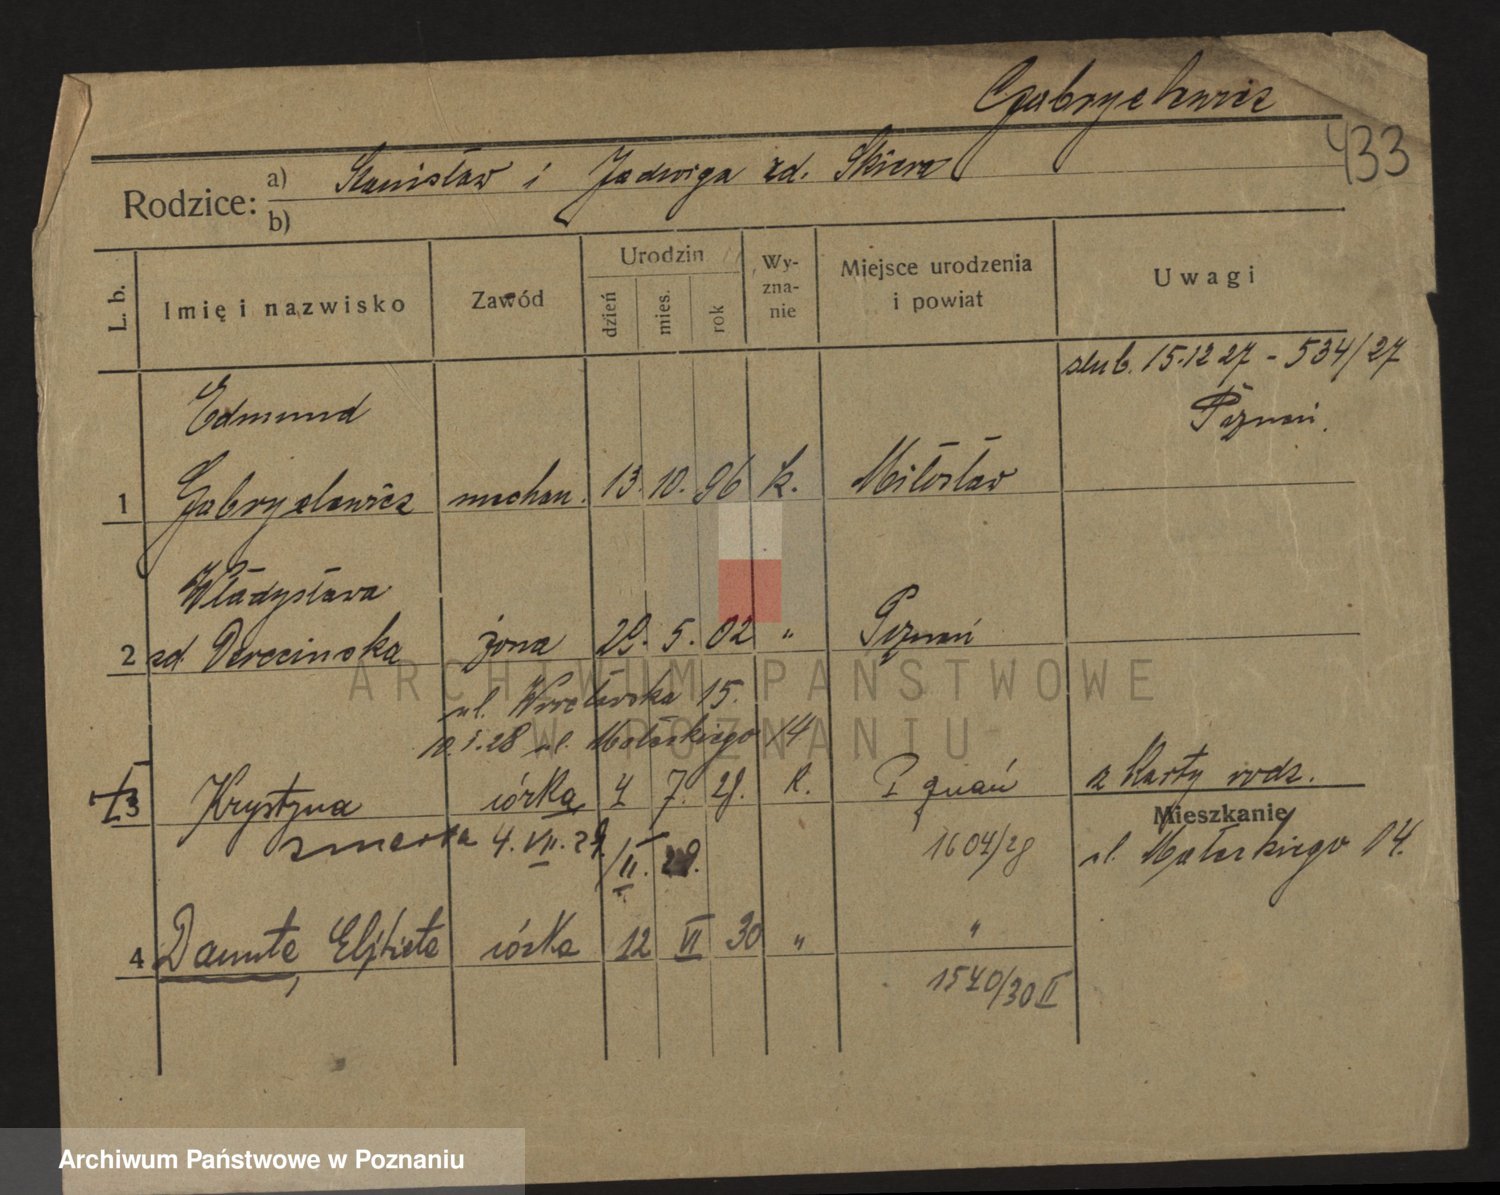 Gabryelewicz
433
Rodzice: a) Stanisław i Jadwiga zd. Skiera
b)
L. b. Imię i nazwisko Zawód Urodzin dzień mies. rok Wy-zna-nie Miejsce urodzenia i powiat Uwagi
ślub. 15.12 27 - 534/27
Poznań.
Edmund
1 Gabryelewicz mechan. 13. 10. 96 k. Miłosław
Władysława
2 zd. Derecinska żona 29. 5. 02 " Poznań
ARCHIWUM PAŃSTWOWE
W POZNANIU
ul. Wrocławska 15.
10.1.28 ul. Małeckiego 14
3 Krystyna córka 4 7. 28. k. Poznań z Karty rodz.
Mieszkanie
zmarła 4. VII. 29. 1604/28 ul. Małeckiego 14.
II. 29.
4 Danuta, Elżbieta córka 12 VI 30 " "
1540/30 II
Archiwum Państwowe w Poznaniu